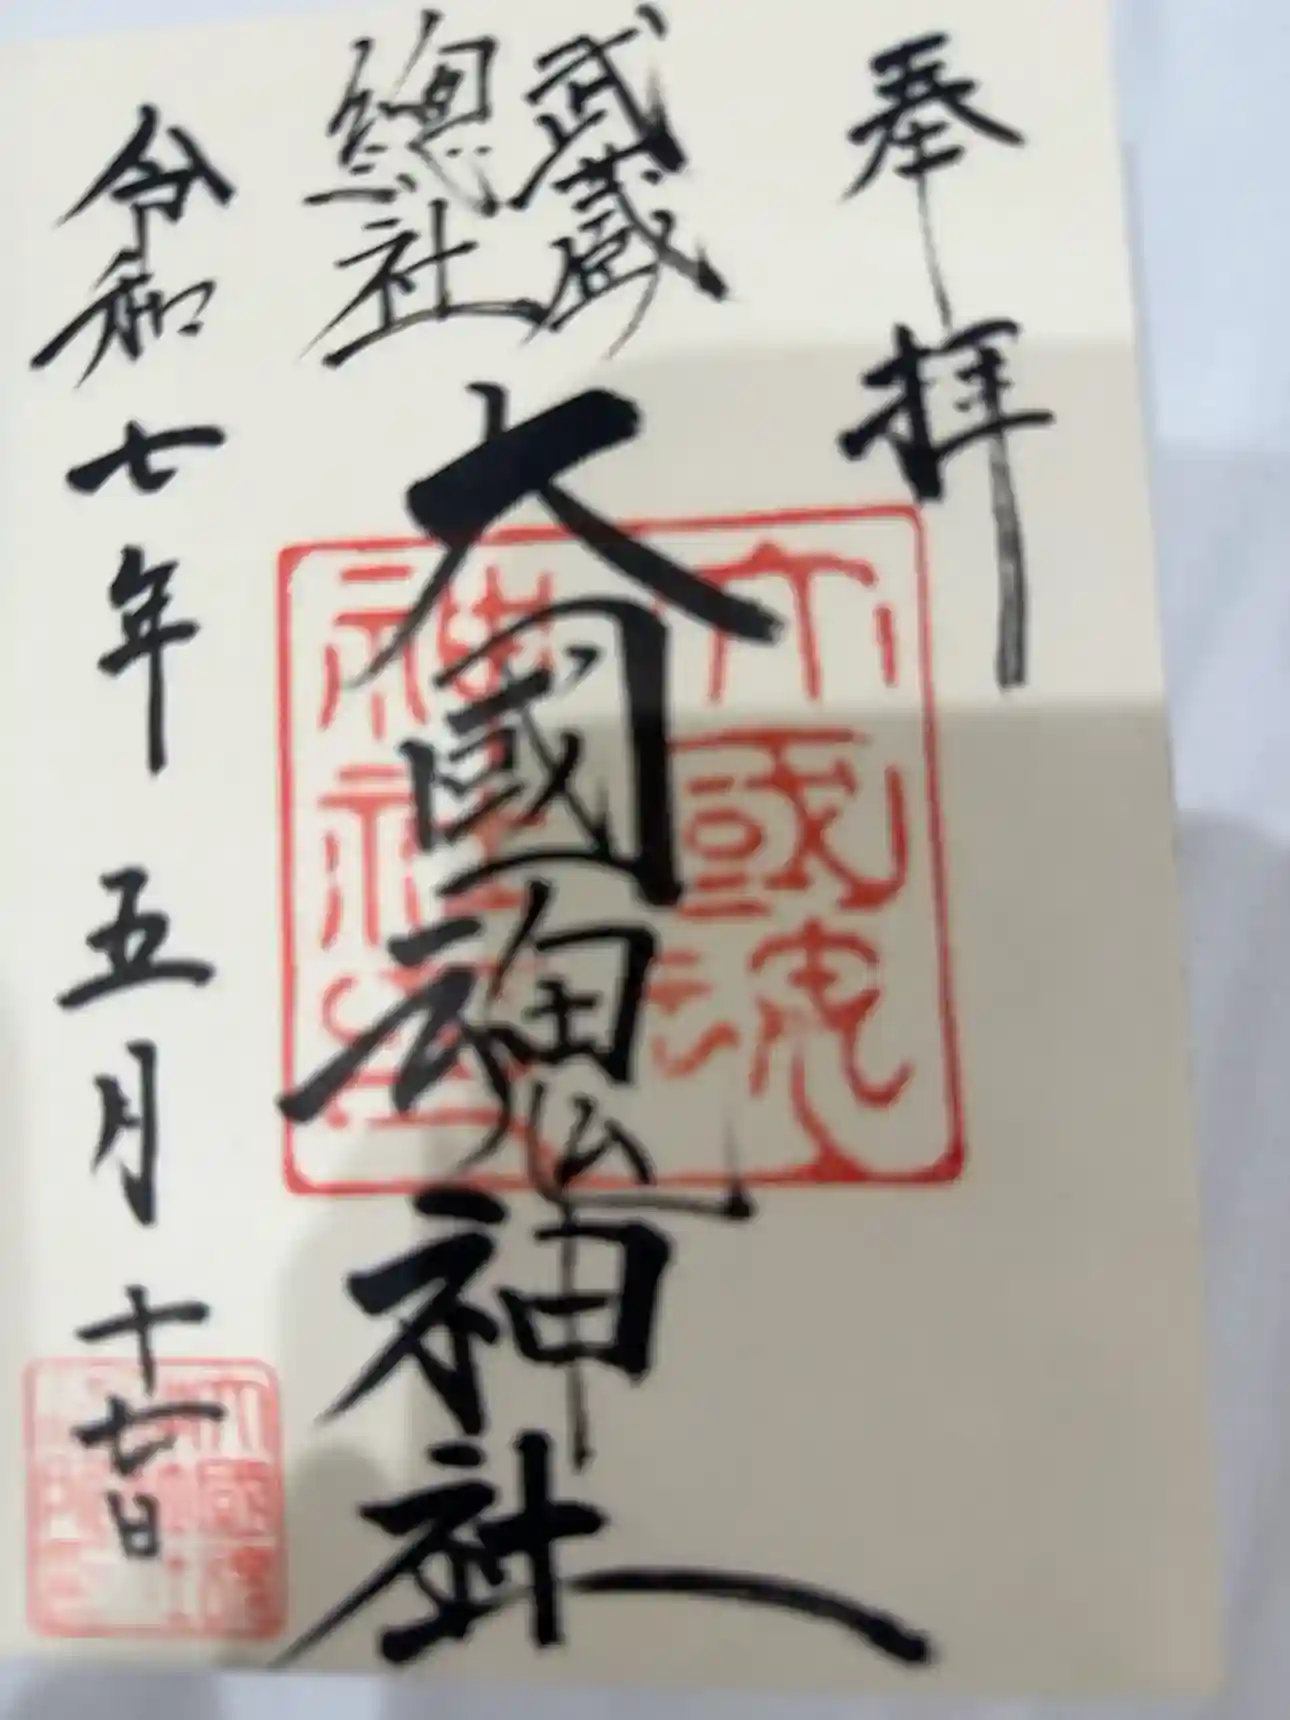 奉拝
武蔵
總社
大國魂神社
令和七年 五月 十七日
大國魂
神社